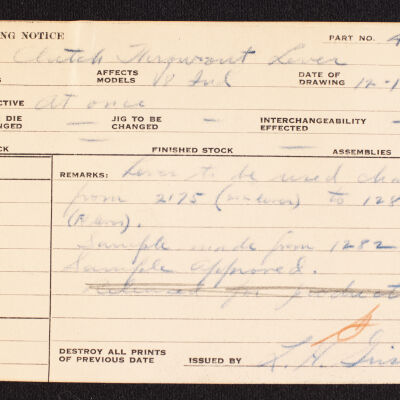 NG NOTICE PART NO. 4
Clutch Throwout Lever
S AFFECTS MODELS DATE OF DRAWING 12-1
CTIVE At once
DIE NGED - JIG TO BE CHANGED - INTERCHANGEABILITY EFFECTED -
CK FINISHED STOCK ASSEMBLIES
REMARKS: Lever to be used cha
from 2175 to 128
Sample made from 1282
Sample approved.
Released for product
DESTROY ALL PRINTS OF PREVIOUS DATE ISSUED BY L. H.